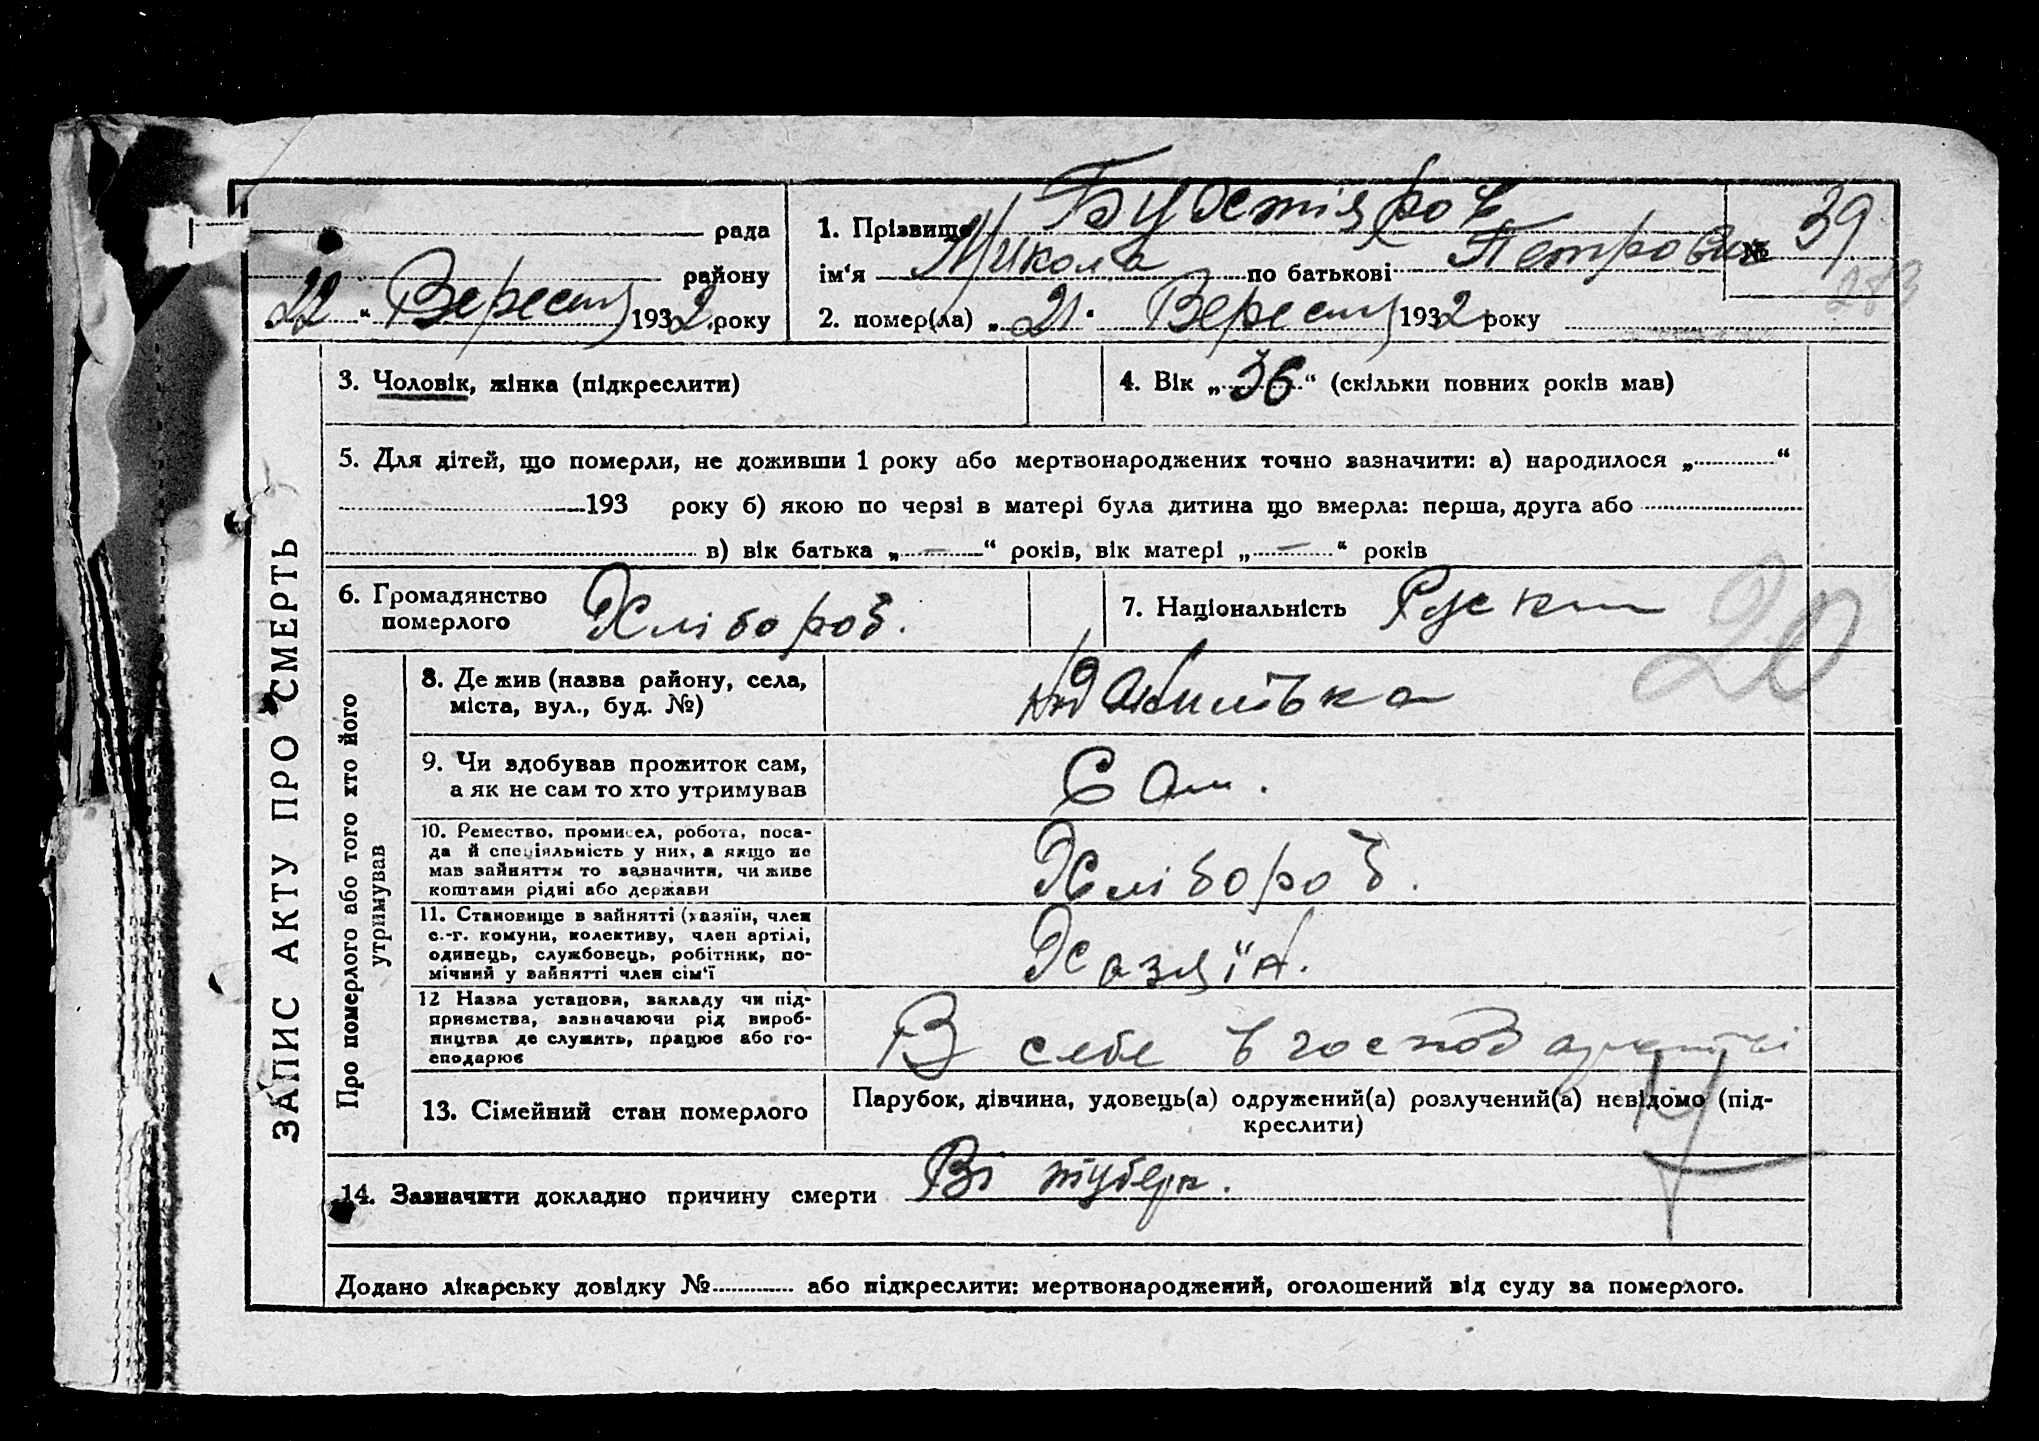 рада
району
22 " Вересня 1932 року
1. Прізвище
ім'я Микола по батькові Петрович
2. помер(ла) „ 21 " Вересня 1932 року
№ 39
283
3. Чоловік, жінка (підкреслити)
4. Вік „ 36 “ (скільки повних років мав)
5. Для дітей, що померли, не доживши 1 року або мертвонароджених точно зазначити: а) народилося „ “
193 року б) якою по черзі в матері була дитина що вмерла: перша, друга або
в) вік батька „ — “ років, вік матері „ — “ років
6. Громадянство
померлого Хлібороб.
7. Національність Руски
20
ЗАПИС АКТУ ПРО СМЕРТЬ
Про померлого або того хто його
утримував
8. Де жив (назва району, села,
міста, вул., буд. №)
9. Чи здобував прожиток сам,
а як не сам то хто утримував
Сам.
10. Ремество, промисел, робота, поса-
да й спеціяльність у них, а якщо не
мав зайняття то зазначити, чи живе
коштами рідні або держави
Хлібороб.
11. Становище в зайнятті (хазяїн, член
с.-г. комуни, колективу, член артілі,
одинець, службовець, робітник, по-
мічний у зайнятті член сім'ї
Хазяїн.
12 Назва установи, закладу чи під-
приємства, зазначаючи рід вироб-
ництва де служить, працює або го-
сподарює
В себе в господарстві
13. Сімейний стан померлого
Парубок, дівчина, удовець(а) одружений(а) розлучений(а) невідомо (під-
креслити)
14. Зазначити докладно причину смерти Ві туберк.
Додано лікарську довідку № або підкреслити: мертвонароджений, оголошений від суду за померлого.